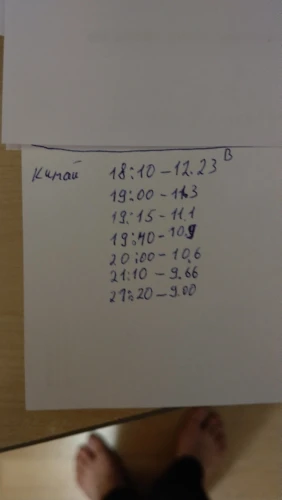 Китай 18:10 - 12.23 В
19:00 - 11.3
19:15 - 11.1
19:40 - 10.9
20:00 - 10.6
21:10 - 9.66
21:20 - 9.00